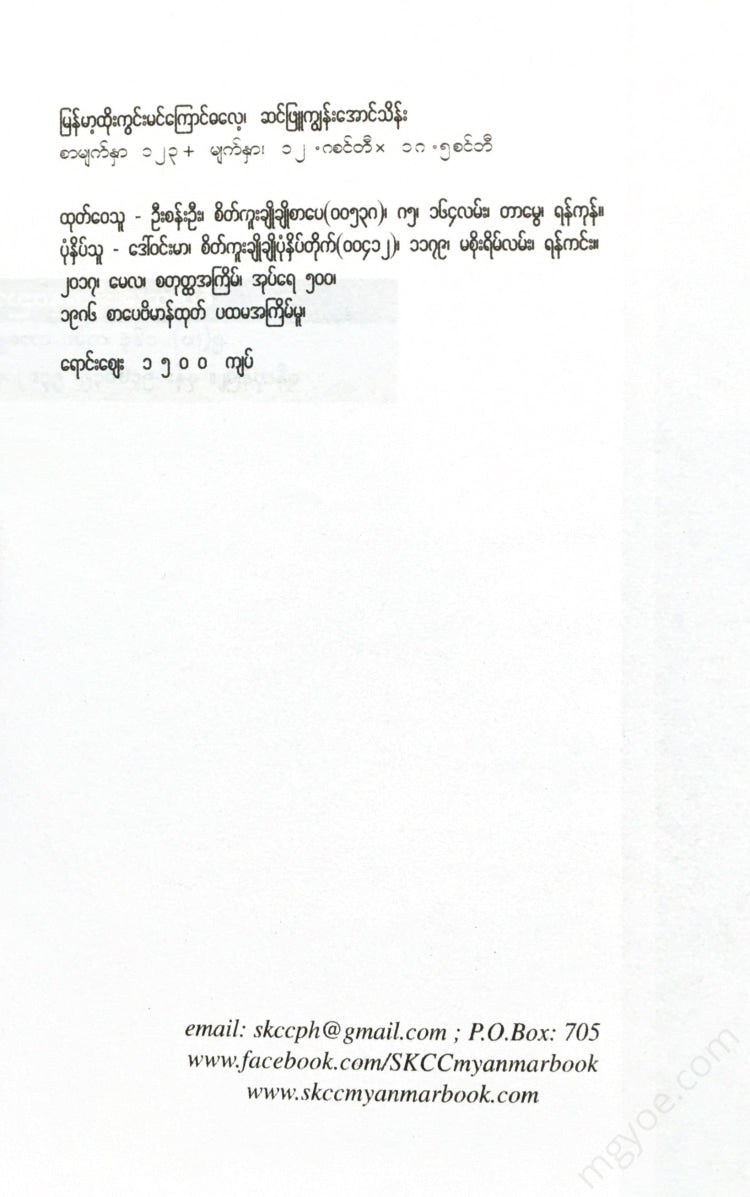 မြန်မာ့ထိုးကွင်းမင်ကြောင်ဓလေ့၊ ဆင်ဖြူကျွန်းအောင်သိန်း
စာမျက်နှာ ၁၂၃ + မျက်နှား ၁၂ .ဂစင်တီ× ၁ဂ .၅စင်တီ
ထုတ်ဝေသူ - ဦးစန်းဦး၊ စိတ်ကူးချိုချိုစာပေ(၀၀၅၃ဂ)၊ ဂ၅၊ ၁၆၄လမ်း၊ တာမွေ၊ ရန်ကုန်။
ပုံနှိပ်သူ - ဒေါ်ဝင်းမာ၊ စိတ်ကူးချိုချိုပုံနှိပ်တိုက်(၀၀၄၁၂)၊ ၁၁၇၉၊ မစိုးရိမ်လမ်း၊ ရန်ကင်း။
၂၀၁၇၊ မေလ၊ စတုတ္ထအကြိမ်၊ အုပ်ရေ ၅၀၀၊
၁၉ဂ၆ စာပေဗိမာန်ထုတ် ပထမအကြိမ်မူ၊
ရောင်းဈေး ၁ ၅ ၀ ၀ ကျပ်
email: skccph@gmail.com ; P.O.Box: 705
www.facebook.com/SKCCmyanmarbook
www.skccmyanmarbook.com
mgyoe.com